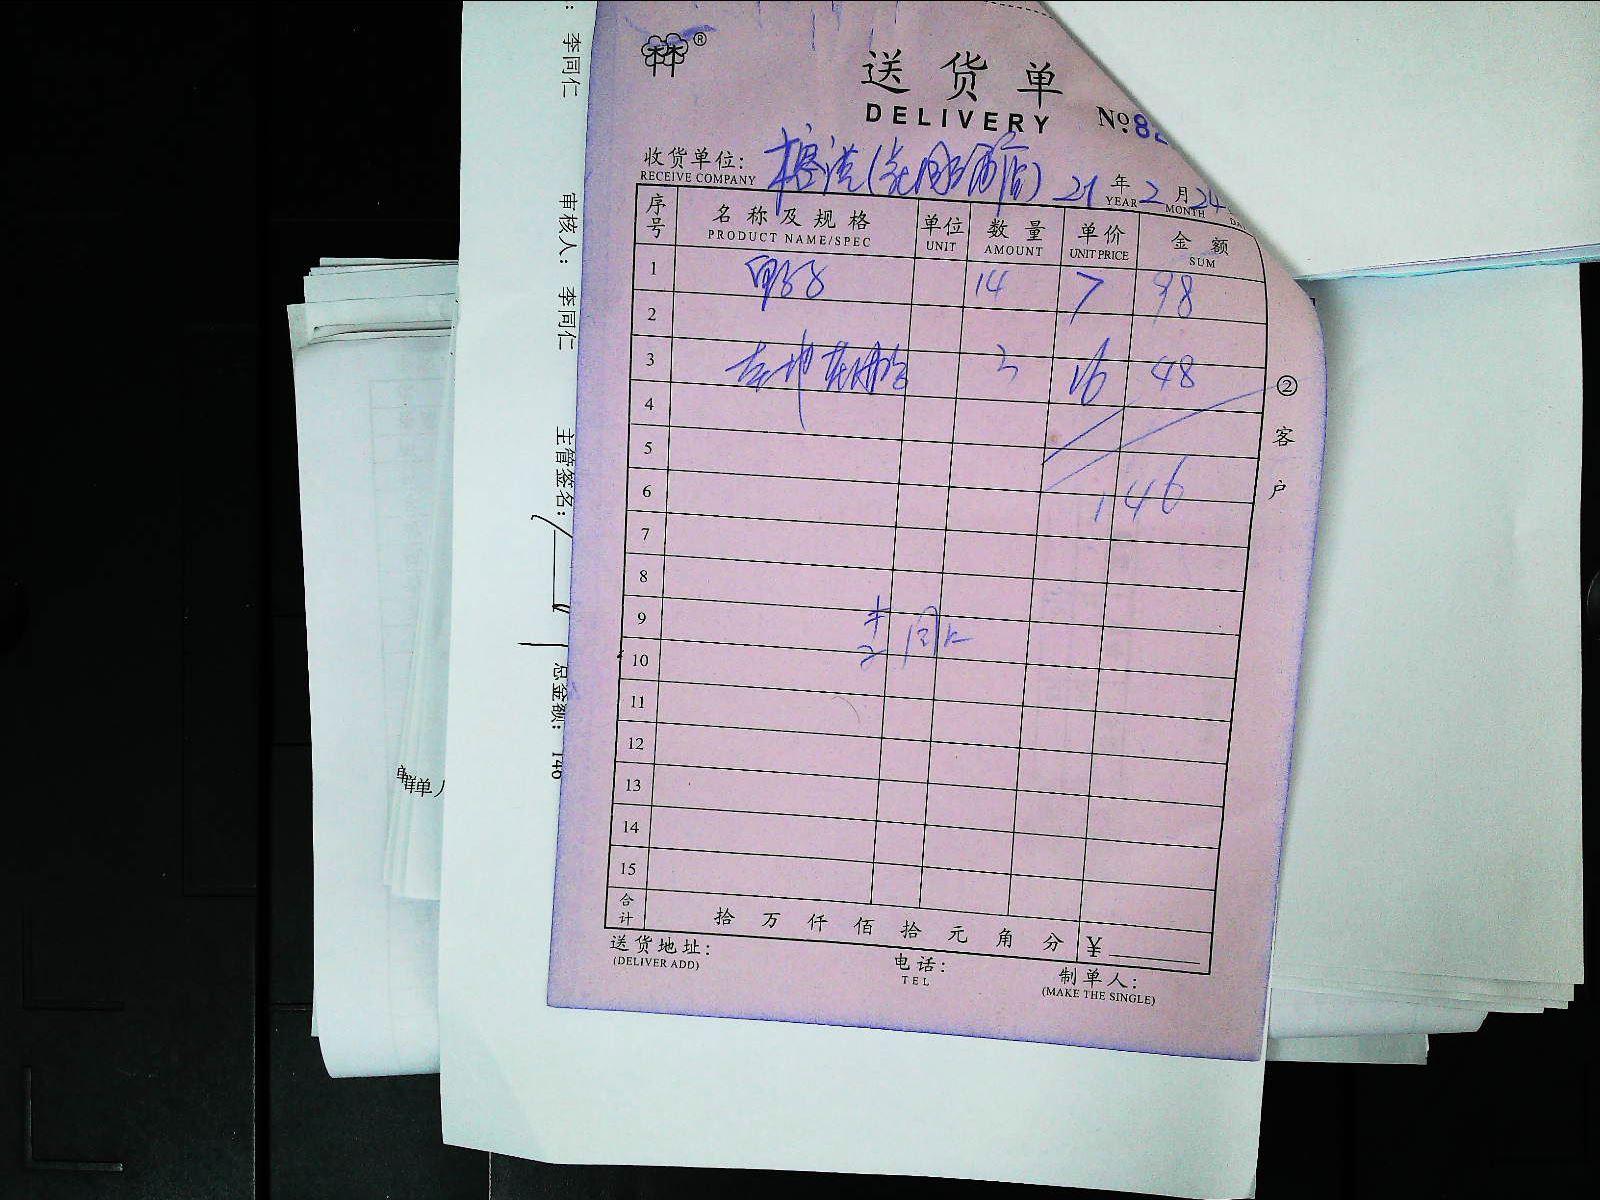 林
®
送货单
DELIVERY
No:82
收货单位:
RECEIVE COMPANY
21 年 2 月 24
YEAR MONTH
序号 名称及规格 单位 数量 单价 金额
PRODUCT NAME/SPEC UNIT AMOUNT UNIT PRICE SUM
1 14 7 98
2
3 本地 3 16 48
4
5
6 146
7
8
9 李同仁
10
11
12
13
14
15
合计 拾 万 仟 佰 拾 元 角 分 ¥
送货地址: 电话: 制单人:
(DELIVER ADD) TEL (MAKE THE SINGLE)
② 客户
: 李同仁
审核人: 李同仁
主管签名:
总金额: 146
单人